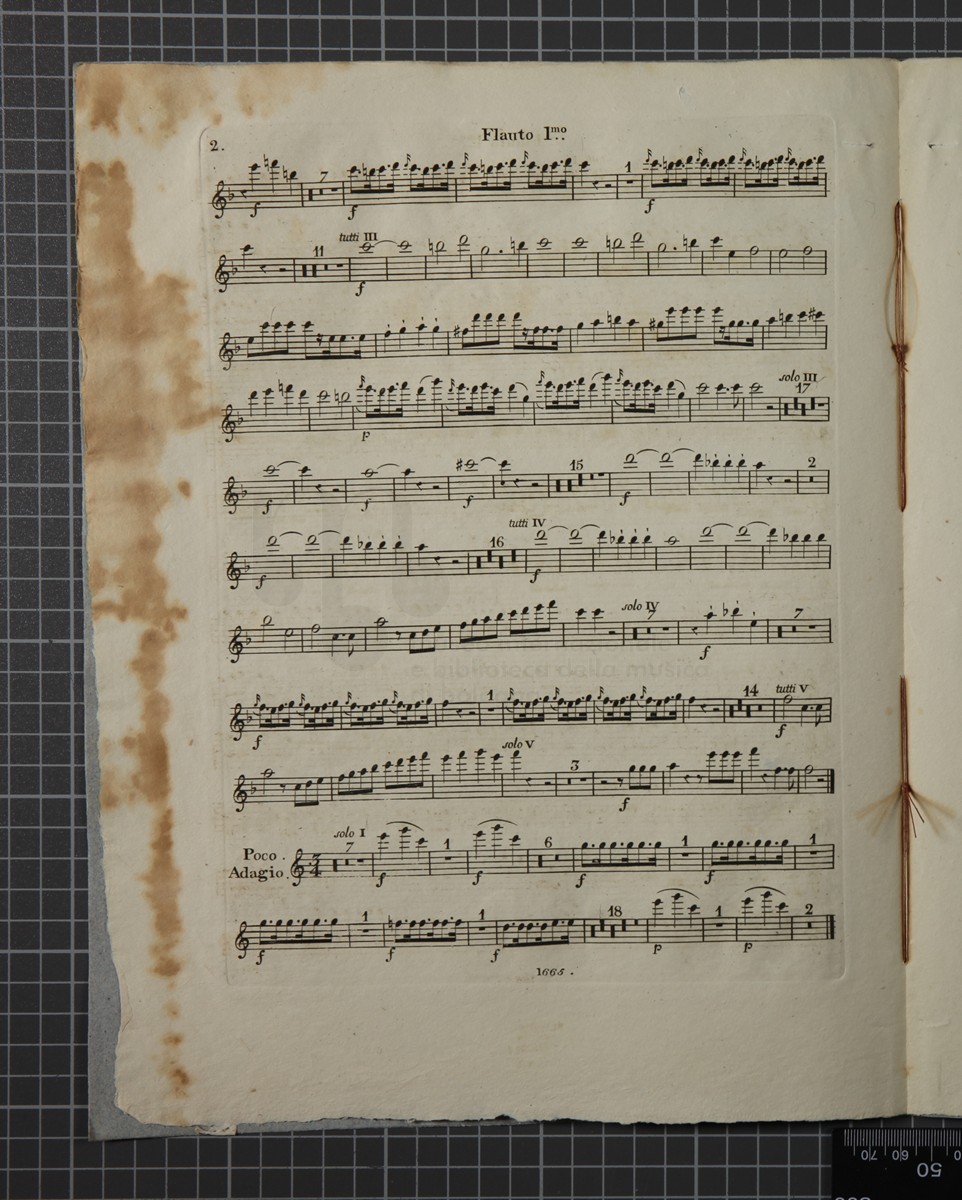 2.
Flauto 1.mo
7 1
f f f
11 tutti III
f
solo III
p 17
15 2
f f f f
tutti IV
16
f f
solo IV
7 7
f
1 14 tutti V
f f
solo V
3
f
Poco
Adagio.
solo I
7 1 6 1 1
3/4 f f f f
1 1 18 1 2
f f f p p
1665.
70 60 50